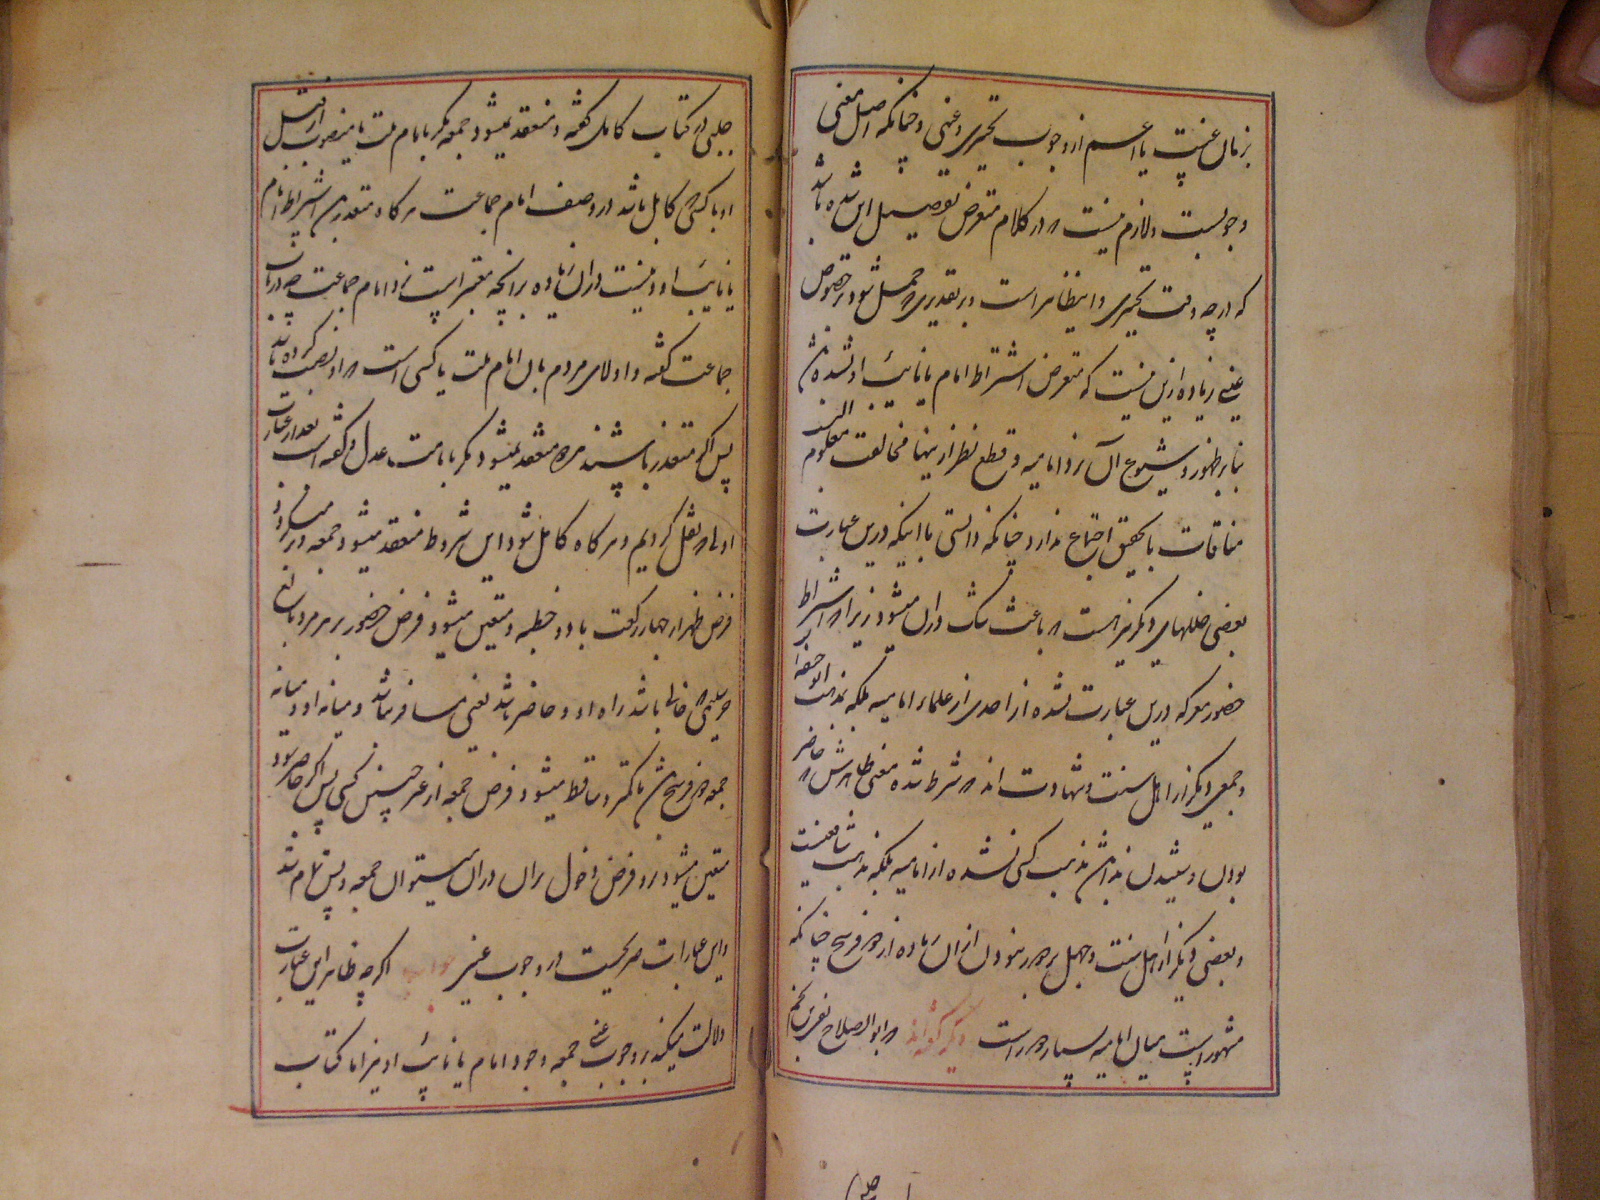 بزمان غیبت یا اعم از وجوب تخییری و عینی و چنانکه اصل معنی
وجوبست و لازم نیست که در کلام متعرض تفصیل این شده باشد
که در چه وقت تخییری و این ظاهر است و بر تقدیری که حمل شود بر خصوص
عینی زیاده ازین نیست که متعرض اشتراط امام یا نایب او نشده باشد
بنا بر ظهور و شیوع آن نزد امامیه و قطع نظر از اینها مخالفت معلوم النسب
منافات با تحقق اجماع ندارد چنانکه دانستی با اینکه درین عبارت
بعضی خللهای دیگر نیز هست که باعث شک در آن میشود زیرا که اشتراط
حضور معرکه درین عبارت نشده از احدی از علماء امامیه بلکه مذهب ابو حنیفه
و جمعی دیگر از اهل سنت و شهادت اند که شرط شده معنی ظاهرش که حاضر
بودن و شنیدن نداش مذهب کسی نشده از امامیه بلکه مذهب شافعیست
و بعضی دیگر از اهل سنت و حمل بر دور نبودن از آن زیاده از دو فرسخ چنانکه
مشهور است میان امامیه بسیار دور است دیگر گفته‌اند که ابو الصلاح تقی بن نجم
حلبی در کتاب کامل گفته و منعقد نمیشود جمعه مگر با امام ملت یا منصوب از قبل
او یا کسی که کامل باشد در وصف امام جماعت هر گاه متعذر
یا نایب او و نیست در آن زیاده بر آنچه معتبر است نزد امام جماعت چه در باب
جماعت گفته و اولای مردم بآن امام ملت یا کسی است که او نصب کرده باشد
پس اگر متعذر باشند هر دو منعقد نمیشود مگر بامامت عدل و گفته است بعد از عبارت
اولی که نقل کردیم و هر گاه کامل شود این شروط منعقد میشود جمعه و
فرض ظهر از چهار رکعت با دو خطبه و متعین میشود فرض حضور بر هر مرد بالغ
حر سلیمی که خالی باشد راه او و حاضر باشد یعنی مسافر نباشد و میانه او و میانه
جمعه دو فرسخ باشد یا کمتر و ساقط میشود فرض جمعه از غیر چنین کسی پس اگر حاضر شود
متعین میشود بر او فرض دخول در آن
و این عبارات صریحست در وجوب عینی جواب اگر چه ظاهر این عبارت
دلالت میکند بر وجوب عینی جمعه وجود امام یا نایب او نیز اما کتاب